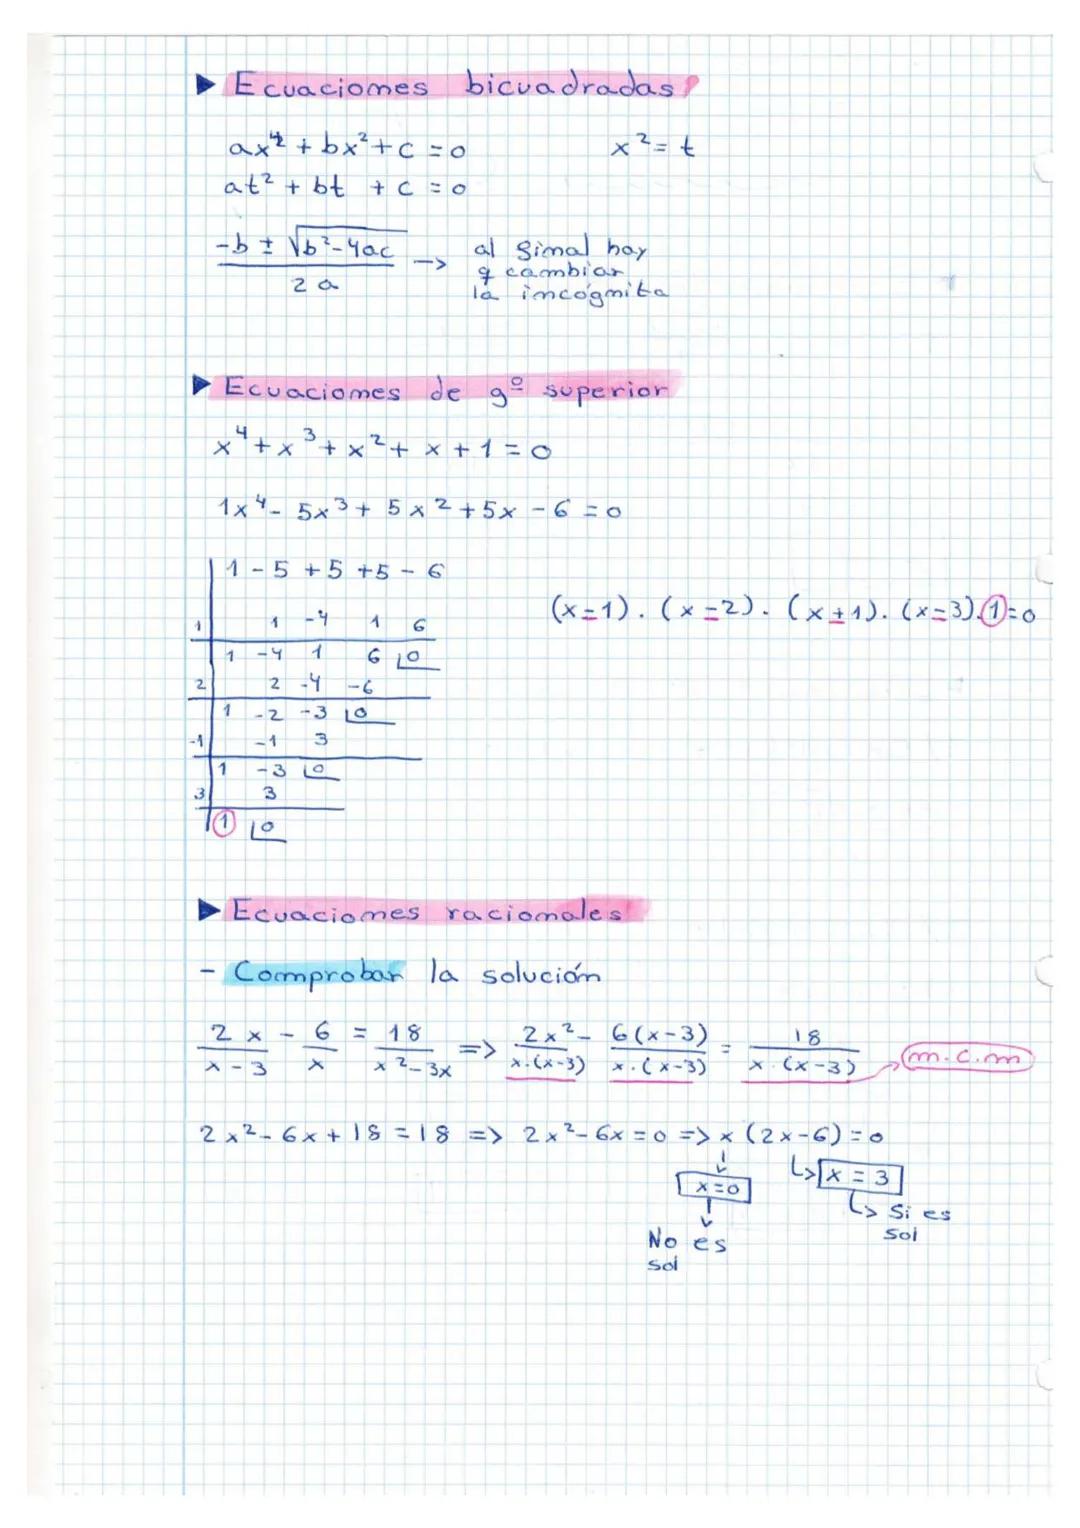 Ecuaciones bicuadradas
ax⁴ + bx² + c = 0 x² = t
at² + bt + c = 0
-b ± √b²-4ac / 2a → al final hay
q cambiar
la incógnita
Ecuaciones de gº superior
x⁴ + x³ + x² + x + 1 = 0
1x⁴ - 5x³ + 5x² + 5x - 6 = 0
1 - 5 + 5 + 5 - 6
(x-1) · (x-2) · (x+1) · (x-3) · 1 = 0
1 1 -4 1 6
1 -4 1 6 0
2 2 -4 -6
1 -2 -3 0
-1 -1 3
1 -3 0
3 3
1 0
Ecuaciones racionales
- Comprobar la solución
2x/x-3 - 6/x = 18/x²-3x => 2x²/x·(x-3) - 6(x-3)/x·(x-3) = 18/x·(x-3) → m.c.m
2x² - 6x + 18 = 18 => 2x² - 6x = 0 => x (2x-6) = 0
x=0 x = 3
No es
sol
Si es
sol